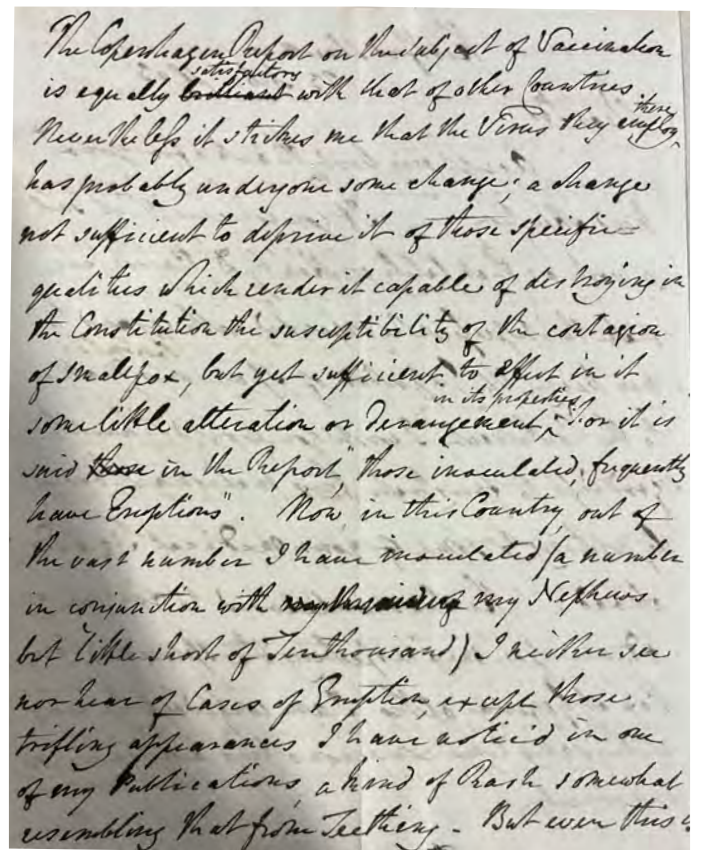 The Copenhagen Report on the subject of Vaccination
satisfactory
is equally brilliant with that of other Countries.
there
Nevertheless it strikes me that the Virus they employ,
has probably undergone some change; a change
not sufficient to deprive it of those specific
qualities which render it capable of destroying in
the Constitution the susceptibility of the contagion
of smallpox, but yet sufficient to effect in it
in its properties
some little alteration or derangement, For it is
said those in the Report, "those inoculated, frequently
have Eruptions". Now in this Country, out of
the vast number I have inoculated (a number
in conjunction with my Nephews
but little short of Ten thousand) I neither see
nor hear of Cases of Eruption, except those
trifling appearances I have noticed in one
of my Publications, a kind of Rash somewhat
resembling that from Teething - But even this